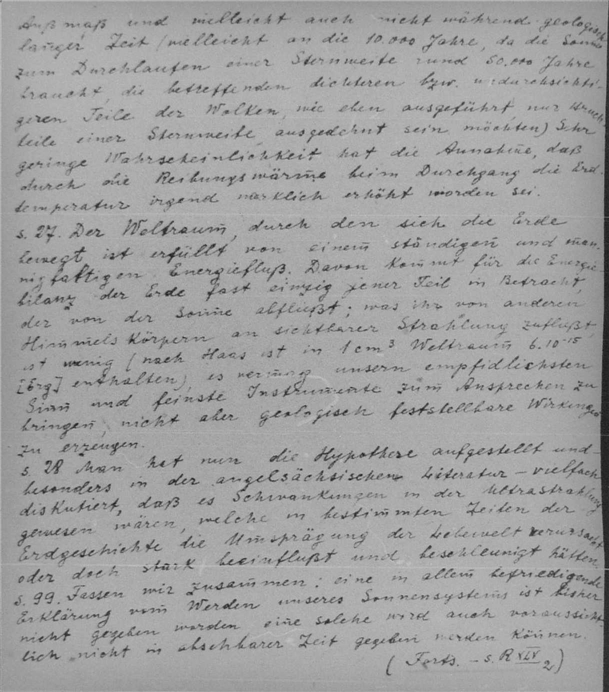 Außmaß und vielleicht auch nicht während geologisch
langer Zeit (vielleicht an die 10.000 Jahre, da die Sonne
zum Durchlaufen einer Sternweite rund 50.000 Jahre
braucht, die betreffenden dichteren bzw. undurchsichti-
geren Teile der Wolken, wie eben ausgeführt, nur Bruch
teile einer Sternweite ausgedehnt sein möchten) Sehr
geringe Wahrscheinlichkeit hat die Annahme, daß
durch die Reibungswärme beim Durchgang die Erd-
temperatur irgend merklich erhöht worden sei.
s. 27. Der Weltraum, durch den sich die Erde
bewegt ist erfüllt von einem ständigen und man-
nigfaltigen Energiefluß. Davon kommt für die Energie
bilanz der Erde fast einzig jener Teil in Betracht,
der von der Sonne abfließt; was ihr von anderen
Himmelskörpern an sichtbarer Strahlung zufließt,
ist wenig (nach Haas ist in 1 cm³ Weltraum 6.10⁻¹⁵
[Erg] enthalten), es vermag unsern empfindlichsten
Sinn und feinste Instrumente zum Ansprechen zu
bringen, nicht aber geologisch feststellbare Wirkungen
zu erzeugen.
s. 28 Man hat nun die Hypothese aufgestellt und -
besonders in der angelsächsischen Literatur - vielfach
diskutiert, daß es Schwankungen in der Ultrastrahlung
gewesen wären, welche in bestimmten Zeiten der
Erdgeschichte die Umprägung der Lebewelt verursacht
oder doch stark beeinflußt und beschleunigt hätten
s. 99. Fassen wir zusammen: eine in allem befriedigende
Erklärung vom Werden unseres Sonnensystems ist bisher
nicht gegeben worden eine solche wird auch voraussicht
lich nicht in absehbarer Zeit gegeben werden können.
(Forts. - s. R XLV 2)